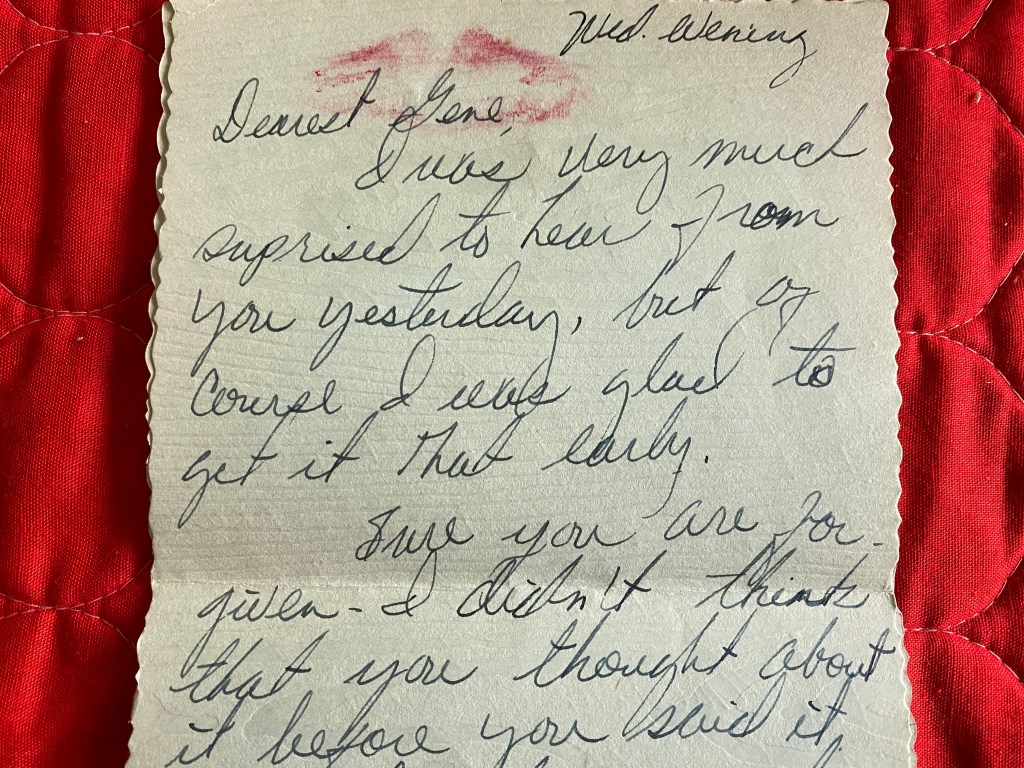 Wed. Evening
Dearest Gene,
I was very much
suprised to hear from
you yesterday, but of
course I was glad to
get it that early.
Sure you are for-
given - I didn't think
that you thought about
it before you said it,